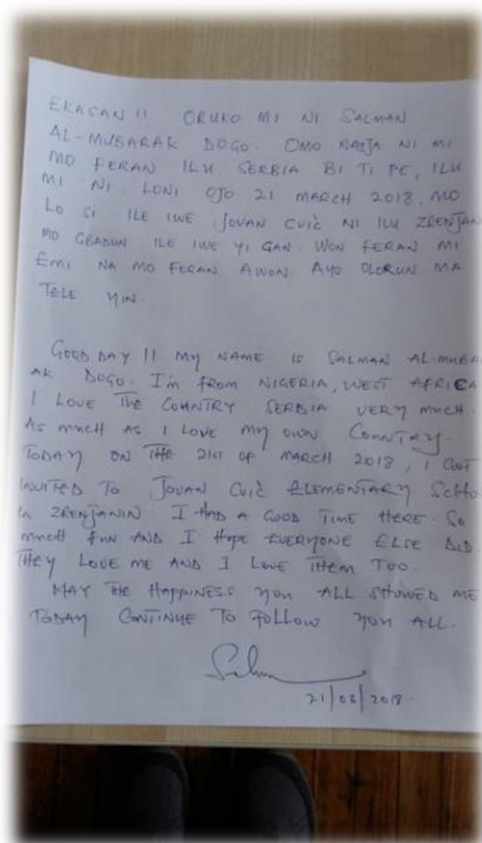 EKAASAN!! ORUKO MI NI SALMAN
AL-MUBARAK DOGO. OMO NAIJA NI MI
MO FERAN ILU SERBIA BI TI PE, ILU
MI NI. LONI OJO 21 MARCH 2018, MO
LO SI ILE IWE JOVAN CVIČ NI ILU ZRENJAN
MO GBADUN ILE IWE YI GAN. WON FERAN MI
EMI NA MO FERAN AWON. AYO OLORUN MA
TELE YIN.
GOOD DAY!! MY NAME IS SALMAN AL-MUBA
AK DOGO. I'm FROM NIGERIA, WEST AFRICA
I LOVE THE COUNTRY SERBIA VERY MUCH.
AS MUCH AS I LOVE MY OWN COUNTRY.
TODAY ON THE 21ST OF MARCH 2018, I GOT
INVITED TO JOVAN CVIČ ELEMENTARY SCHO
IN ZRENJANIN. I HAD A GOOD TIME HERE. SO
MUCH FUN AND I HOPE EVERYONE ELSE DID.
THEY LOVE ME AND I LOVE THEM TOO.
MAY THE HAPPINESS YOU ALL SHOWED ME
TODAY CONTINUE TO FOLLOW YOU ALL.
21/03/2018.